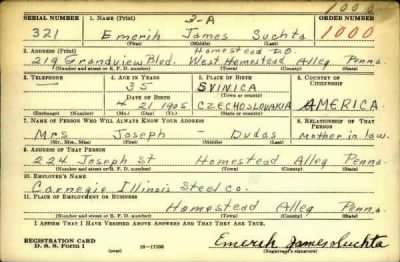 1000
SERIAL NUMBER 1. NAME (Print) 3-A ORDER NUMBER
321 Emerih James Suchta 1000
(First) (Middle) (Last)
2. ADDRESS (Print) Homestead P.O.
219 Grandview Blvd. West Homestead Alleg Penna.
(Number and street or R. F. D. number) (Town) (County) (State)
3. TELEPHONE 4. AGE IN YEARS 5. PLACE OF BIRTH 6. COUNTRY OF CITIZENSHIP
— 35 SVINICA
DATE OF BIRTH (Town or county)
4 21, 1905 CZECHOSLOVAKIA AMERICA.
(Exchange) (Number) (Mo.) (Day) (Yr.) (State or country)
7. NAME OF PERSON WHO WILL ALWAYS KNOW YOUR ADDRESS 8. RELATIONSHIP OF THAT PERSON
Mrs Joseph - Dudas Mother in law.
(Mr., Mrs., Miss) (First) (Middle) (Last)
9. ADDRESS OF THAT PERSON
224 Joseph St Homestead Alleg Penna.
(Number and street or R. F. D. number) (Town) (County) (State)
10. EMPLOYER'S NAME
Carnegie Illinois Steel Co.
11. PLACE OF EMPLOYMENT OR BUSINESS
Homestead Alleg Penna.
(Number and street or R. F. D. number) (Town) (County) (State)
I AFFIRM THAT I HAVE VERIFIED ABOVE ANSWERS AND THAT THEY ARE TRUE.
REGISTRATION CARD
D. S. S. Form 1 16—17105 Emerih James Suchta
(Registrant's signature)